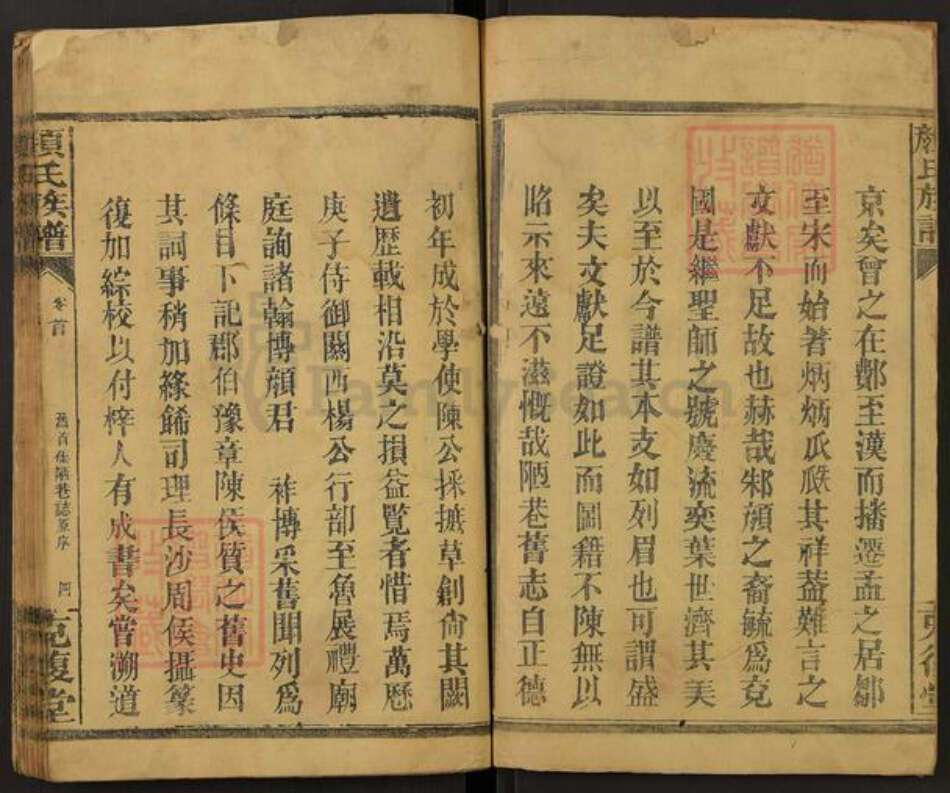 京矣曾之在鄪至漢而播遷孟之居鄒
至宋而始著炳炳瓜瓞其祥葢難言之
文獻不足故也赫哉邾顏之裔毓爲兗
國是繼聖師之號慶流奕葉世濟其美
以至於今譜其本支如列眉也可謂盛
矣夫文獻足證如此而圖籍不陳無以
昭示來遠不滋慨哉陋巷舊志自正德
初年成於學使陳公採摭草創尙其闕
遺歷載相沿莫之損益覽者惜焉萬歷
庚子侍御關西楊公行部至魯展禮廟
庭詢諸翰博顔君 祚博采舊聞列爲
條目下記郡伯豫章陳侯質之舊史因
其詞事稍加綠餙司理長沙周侯攝篆
復加綜校以付梓人有成書矣嘗溯道
顏氏族譜
卷首
舊首在陋巷誌原序
四
克復堂
FamilySearch